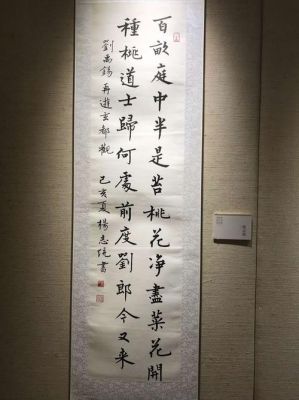 百畝庭中半是苔桃花净盡菜花開
種桃道士歸何處前度劉郎今又来
劉禹錫再遊玄都觀
己亥夏楊志院書